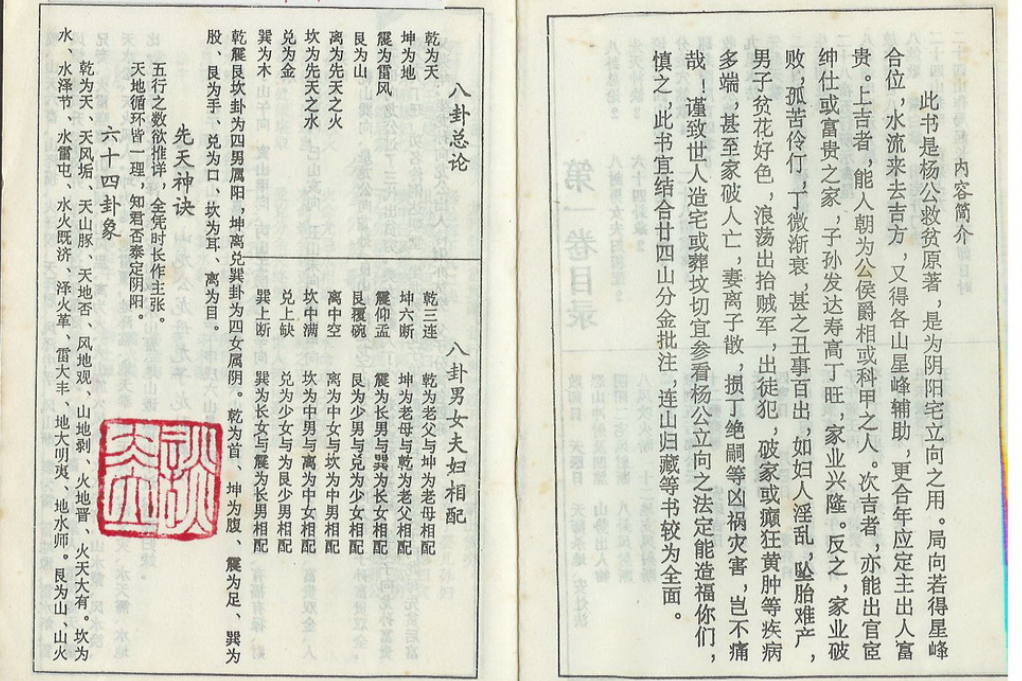 内容简介
此书是杨公救贫原著，是为阴阳宅立向之用。局向若得星峰
合位，水流来去吉方，又得各山星峰辅助，更合年应定主出人富
贵。上吉者，能人朝为公侯爵相或科甲之人。次吉者，亦能出官宦
绅仕或富贵之家，子孙发达寿高丁旺，家业兴隆。反之，家业破
败，孤苦伶仃，丁微渐衰，甚之丑事百出，如妇人淫乱，坠胎难产，
男子贫花好色，浪荡出抬贼军，出徒犯，破家或癫狂黄肿等疾病
多端，甚至家破人亡，妻离子散，损丁绝嗣等凶祸灾害，岂不痛
哉！谨致世人造宅或葬坟切宜参看杨公立向之法定能造福你们，
慎之，此书宜结合廿四山分金批注，连山归藏等书较为全面。
八卦总论
乾为天
坤为地
震为雷风
艮为山
离为先天之火
坎为先天之水
兑为金
巽为木
八卦男女夫妇相配
乾三连 乾为老父与坤为老母相配
坤六断 坤为老母与乾为老父相配
震仰盂 震为长男与巽为长女相配
艮覆碗 艮为少男与兑为少女相配
离中空 离为中女与坎为中男相配
坎中满 坎为中男与离为中女相配
兑上缺 兑为少女与为艮少男相配
巽上断 巽为长女与震为长男相配
乾震艮坎卦为四男属阳，坤离兑巽卦为四女属阴。乾为首、坤为腹、震为足、巽为
股、艮为手、兑为口、坎为耳、离为目。
先天神诀
五行之数欲推详，全凭时长作主张。
天地循环皆一理，知君否泰定阴阳。
六十四卦象
乾为天、天风垢、天山豚、天地否、风地观、山地剥、火地晋、火天大有。坎为
水、水泽节、水雷屯、水火既济、泽火革、雷火丰、地大明夷、地水师。艮为山、山火